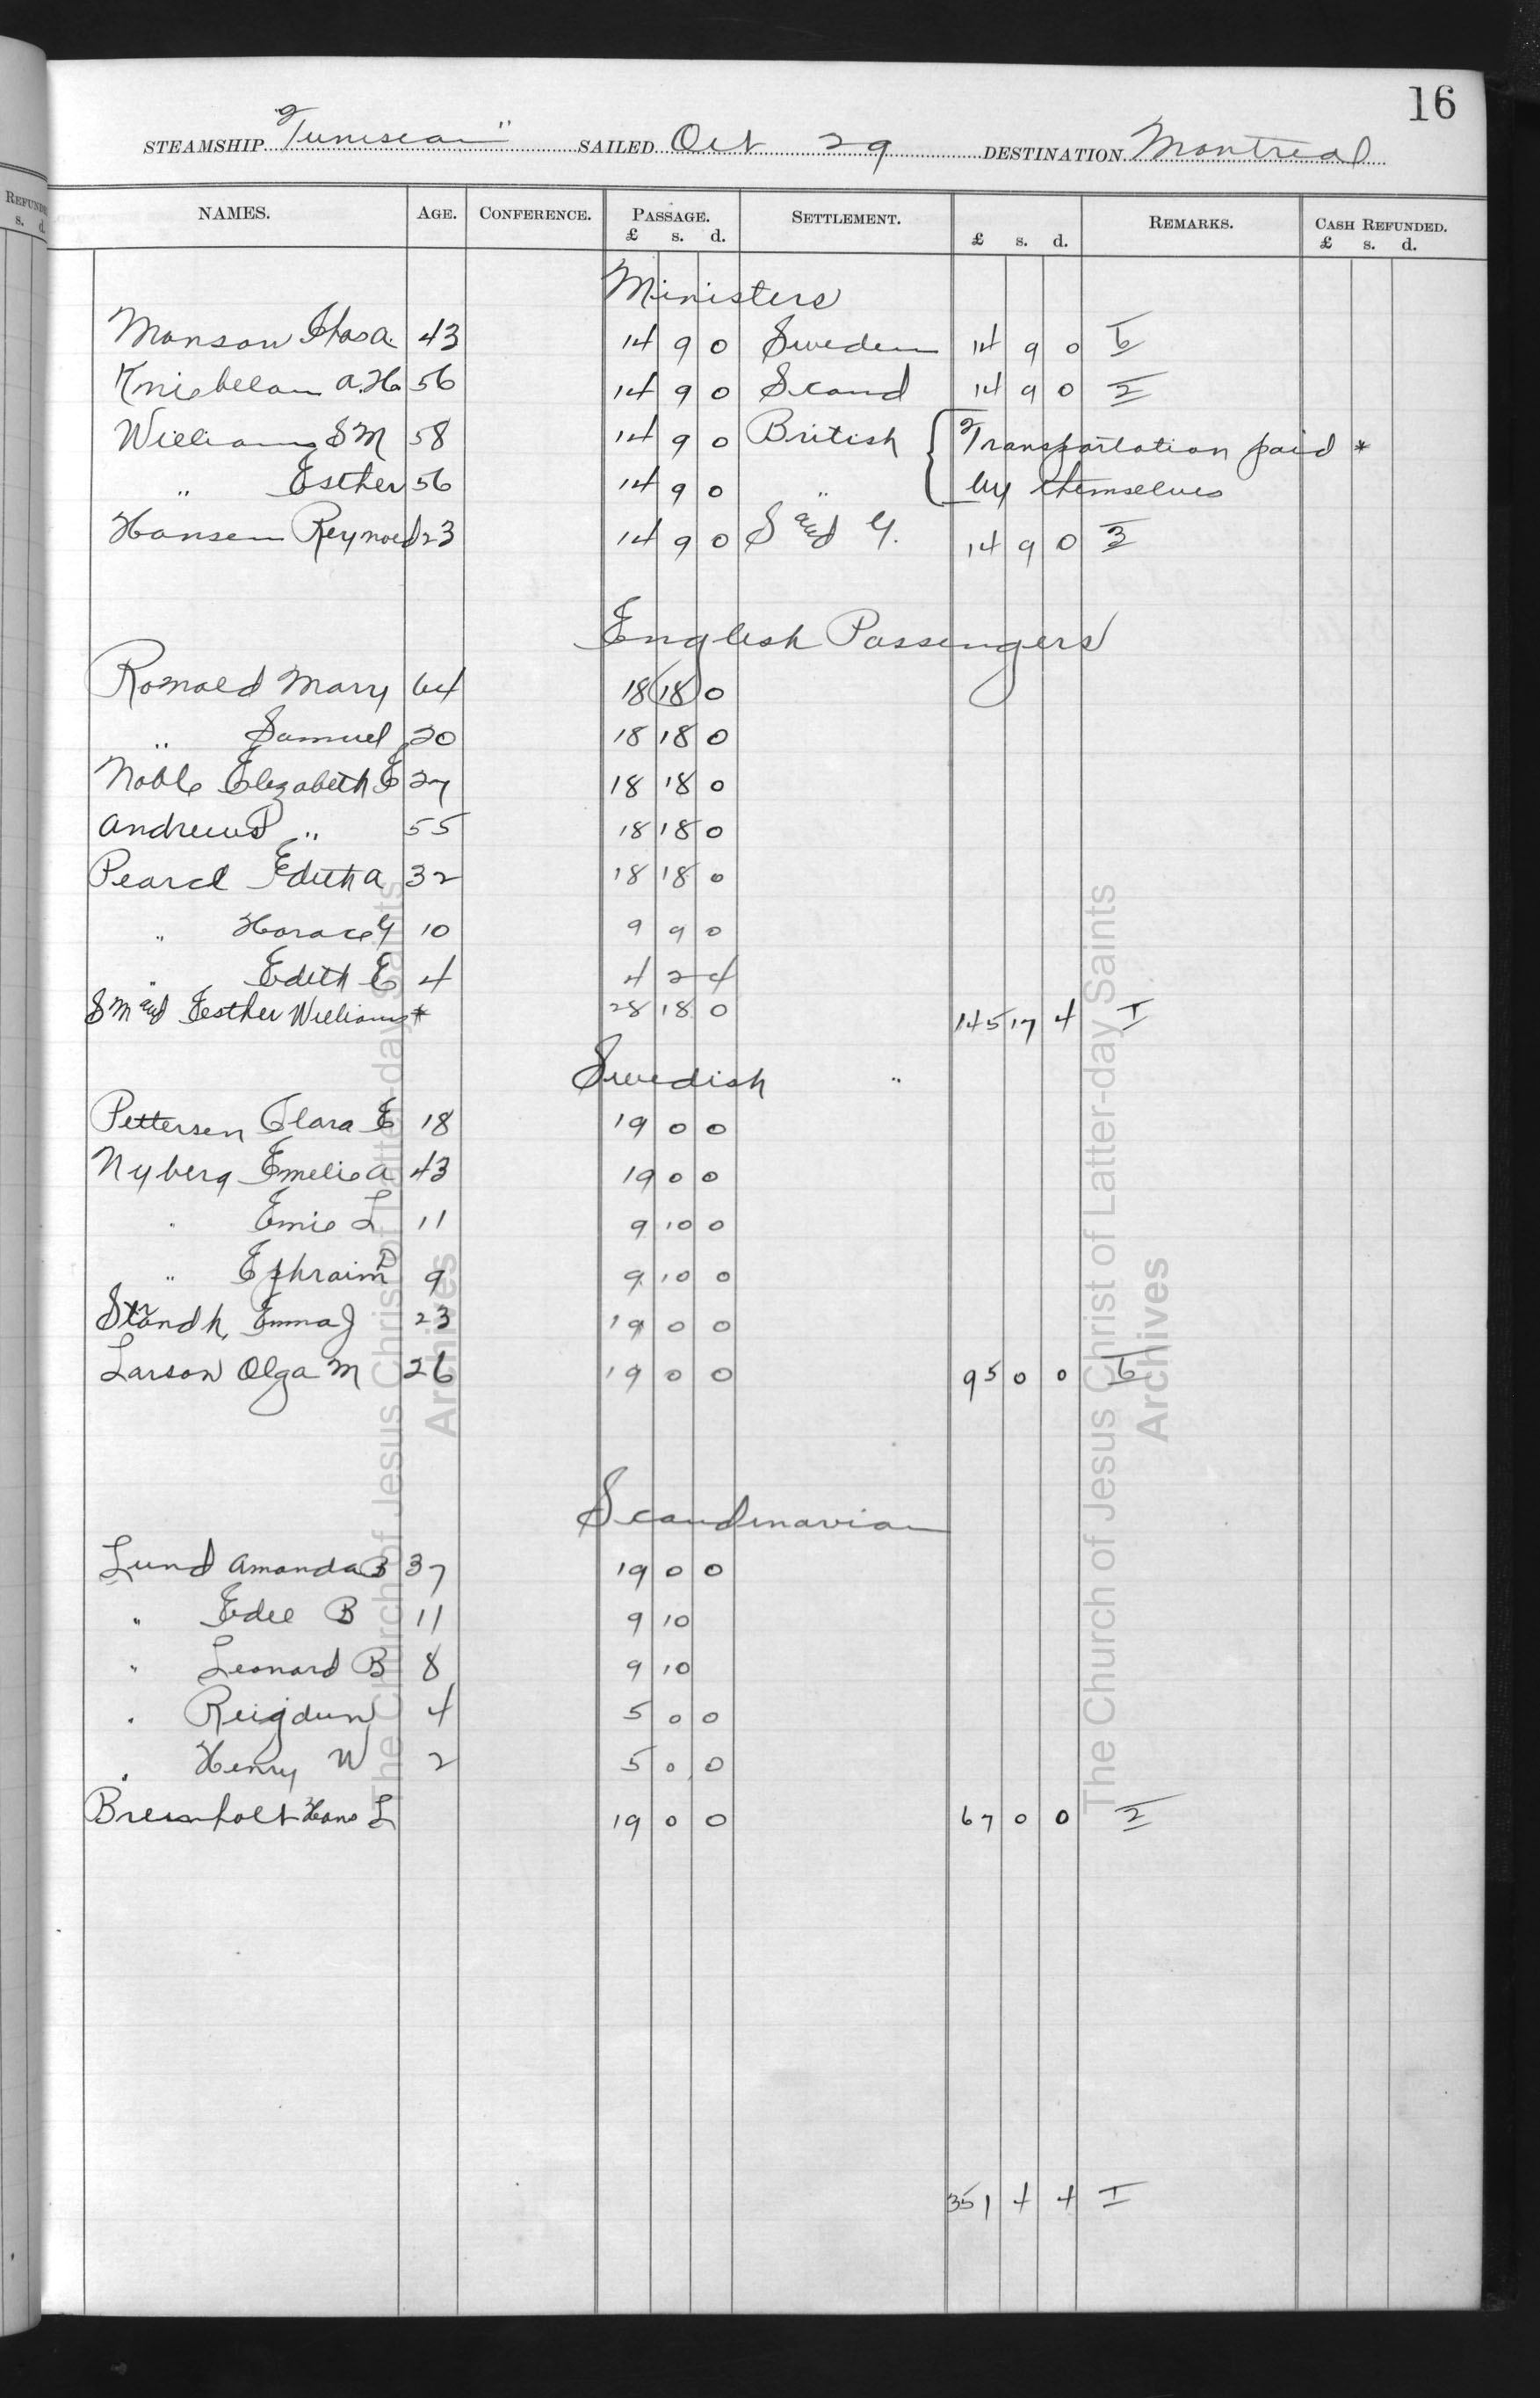 16
STEAMSHIP "Tunisian" SAILED Oct 29 DESTINATION Montreal
REFUNDE
s. d.
NAMES. AGE. CONFERENCE. PASSAGE. £ s. d. SETTLEMENT. £ s. d. REMARKS. CASH REFUNDED. £ s. d.
Ministers
Monson Chas A. 43 14 9 0 Sweden 14 9 0 6
A. H. 56 14 9 0 Scand 14 9 0 2
Williams S M 58 14 9 0 British { Transportation paid *
" Esther 56 14 9 0 " by themselves
Hansen Reynold 23 14 9 0 S and G. 14 9 0 3
English Passengers
Romald Mary 64 18 18 0
" Samuel 20 18 18 0
Noble Elezabeth E 27 18 18 0
Andrews " 55 18 18 0
Pearce Edith A 32 18 18 0
" Horace G 10 9 9 0
" Edith E 4 4 2 4
S M and Esther Williams * 28 18 0 145 17 4 I
Swedish "
Pettersen Clara E 18 19 0 0
Nyberg Emelie A 43 19 0 0
" Emie L 11 9 10 0
" Ephraim D 9 9 10 0
Emma J 23 19 0 0
Larson Olga M 26 19 0 0 95 0 0 6
Scandinavian
Lund Amanda B 37 19 0 0
" Edel B 11 9 10
" Leonard B 8 9 10
" Reigdun 4 5 0 0
" Henry W 2 5 0 0
Bremholt Hans L 19 0 0 67 0 0 2
351 4 4 I
The Church of Jesus Christ of Latter-day Saints
Archives
The Church of Jesus Christ of Latter-day Saints
Archives